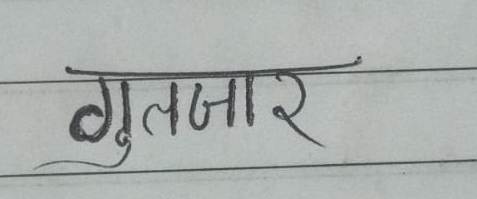 गुलजार